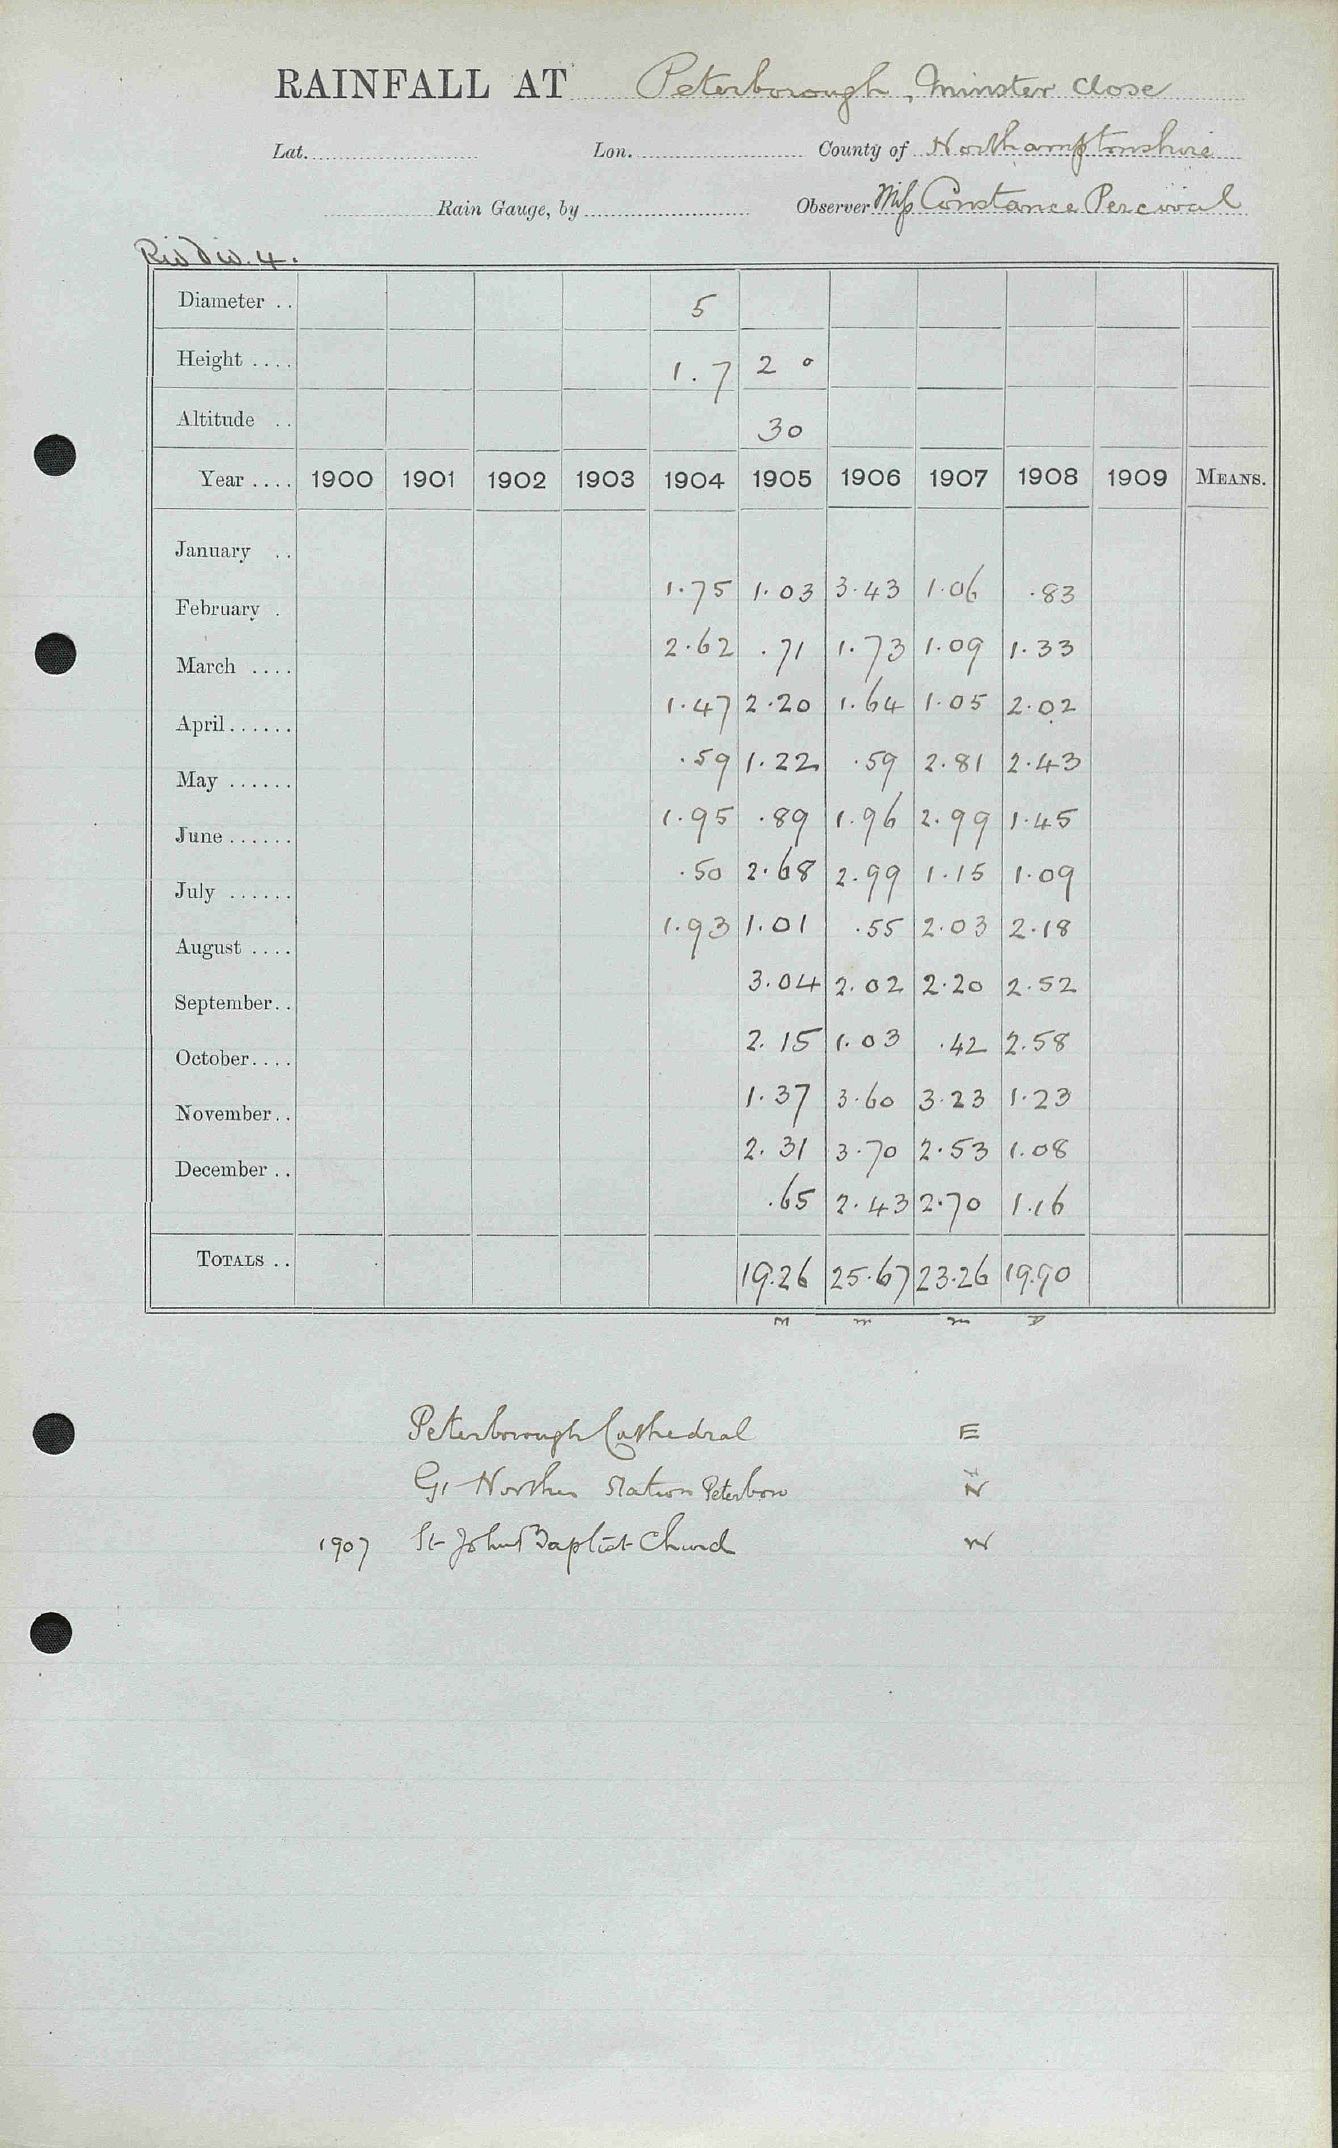 RAINFALL AT Peterborough, Minster Close
Lat. Lon. County of Northamptonshire
Rain Gauge, by Observer Miss Constance Percival
Riv Div. 4.
Diameter .. 5
Height .... 1.7 2 0
Altitude .. 30
Year .... 1900 1901 1902 1903 1904 1905 1906 1907 1908 1909 MEANS.
January ..
1.75 1.03 3.43 1.06 .83
February .
2.62 .71 1.73 1.09 1.33
March ....
1.47 2.20 1.64 1.05 2.02
April......
.59 1.22 .59 2.81 2.43
May ......
1.95 .89 1.96 2.99 1.45
June......
.50 2.68 2.99 1.15 1.09
July ......
1.93 1.01 .55 2.03 2.18
August ....
3.04 2.02 2.20 2.52
September..
2.15 1.03 .42 2.58
October....
1.37 3.60 3.23 1.23
November..
2.31 3.70 2.53 1.08
December ..
.65 2.43 2.70 1.16
TOTALS .. 19.26 25.67 23.26 19.90
Peterborough Cathedral E
Gt Northern Station Peterboro N
1907 St John Baptist Church W